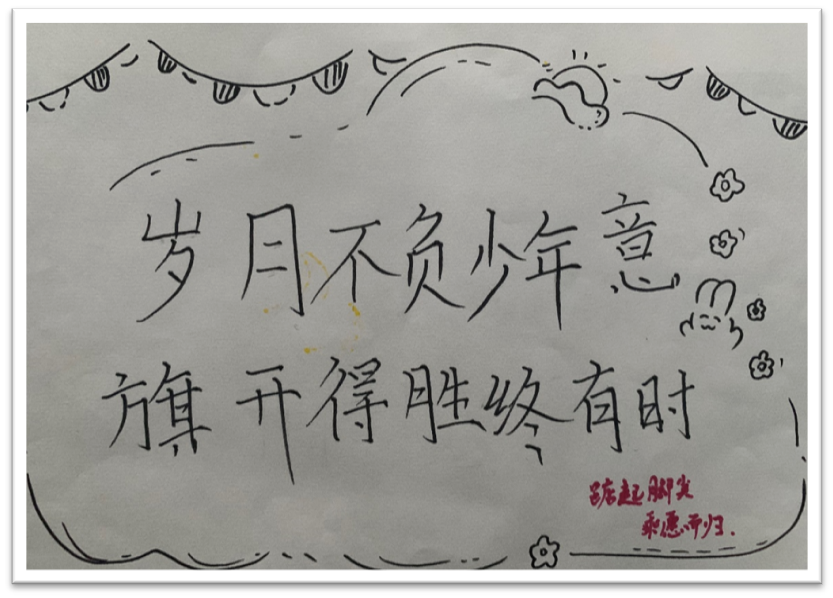 岁月不负少年意
旗开得胜终有时
踮起脚尖
乘愿而归.